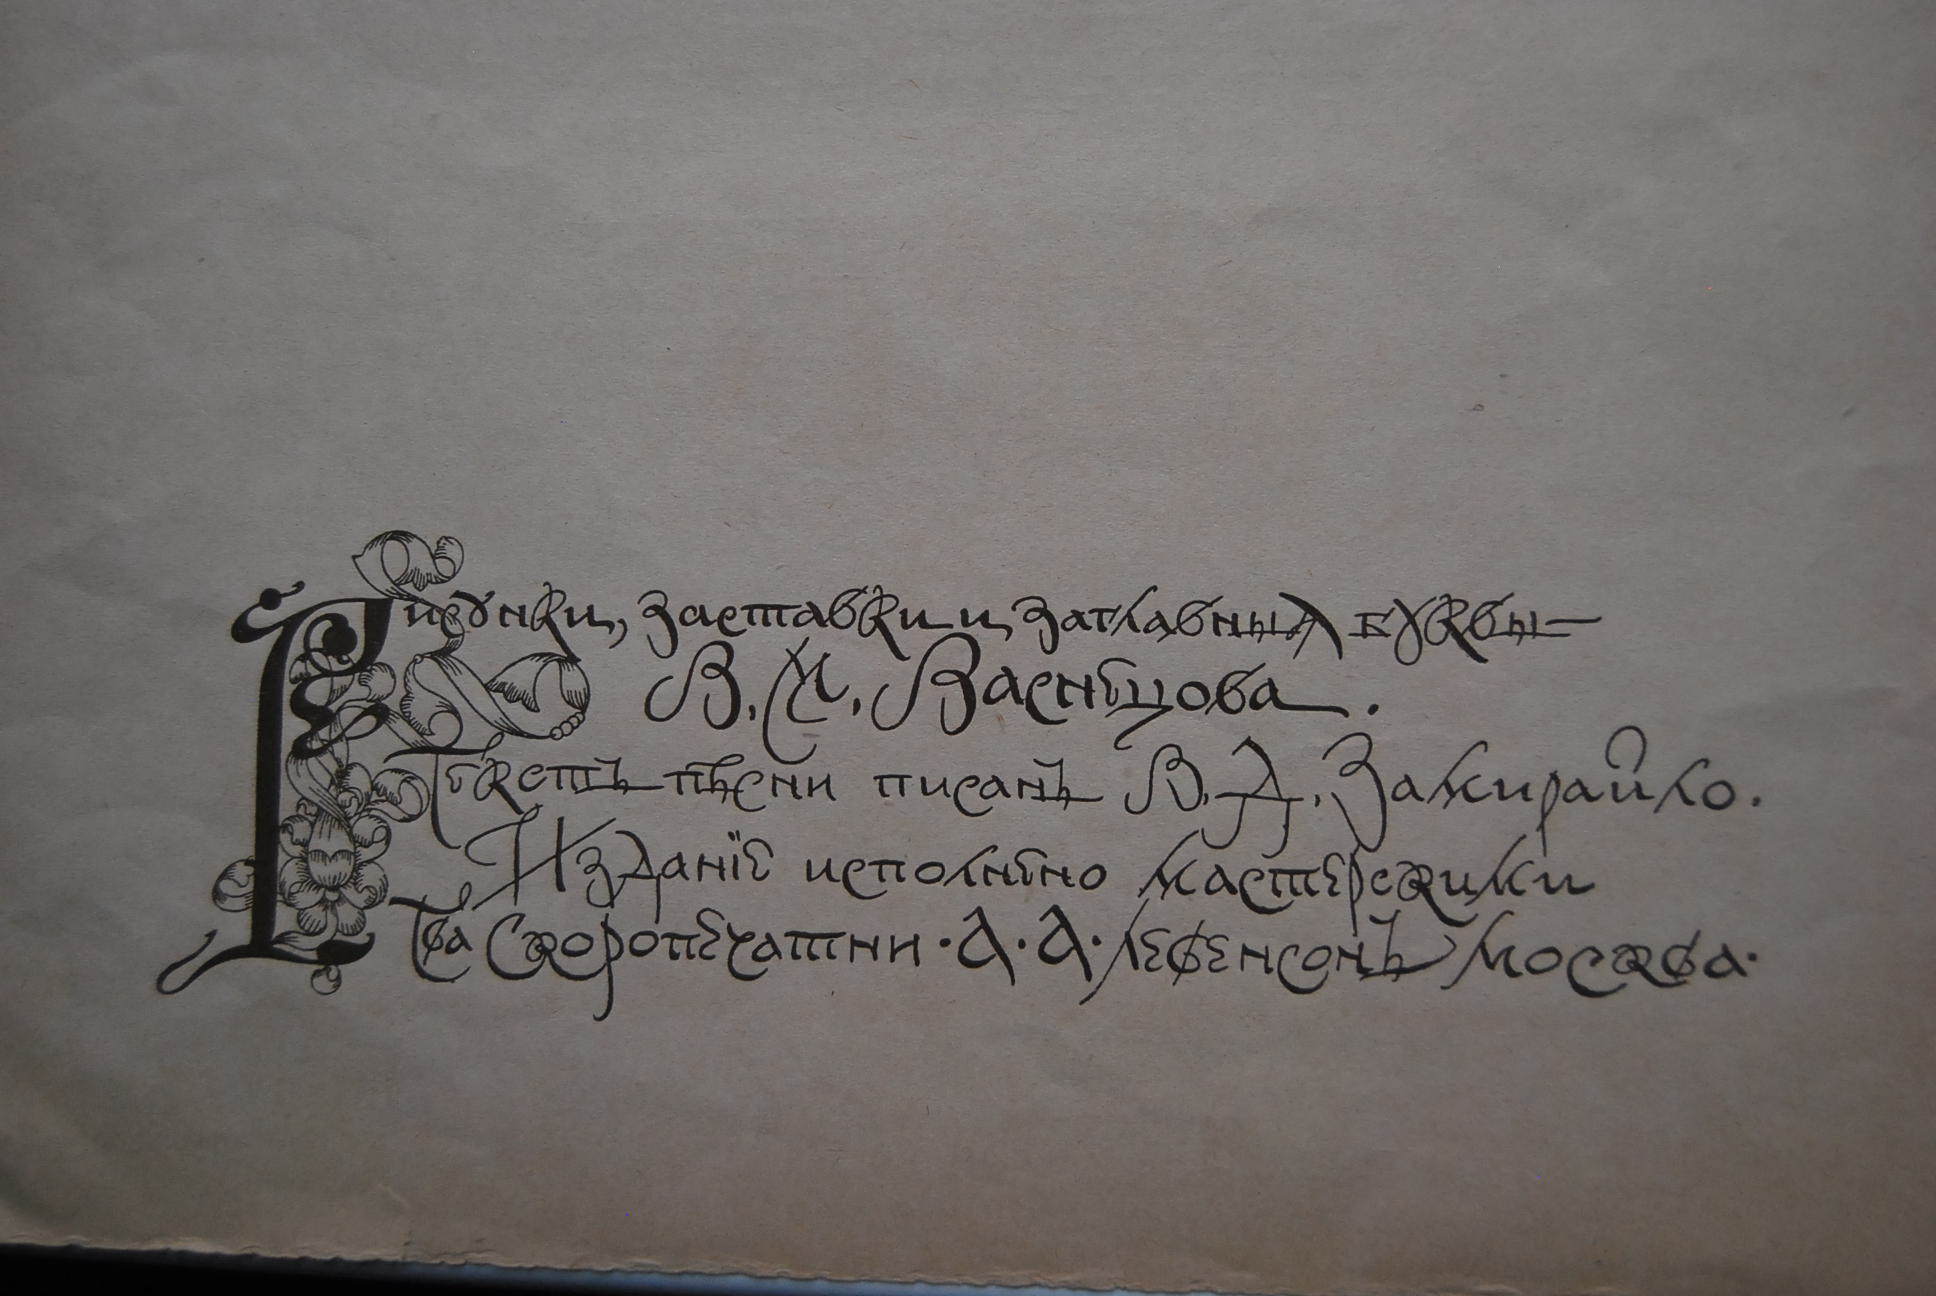 Рисунки, заставки и заглавныя буквы
В. М. Васнецова.
Текстъ пѣсни писанъ В. Д. Замирайло.
Изданїе исполнено мастерскими
Тва Скоропечатни · А · А · Левенсонъ Москва ·